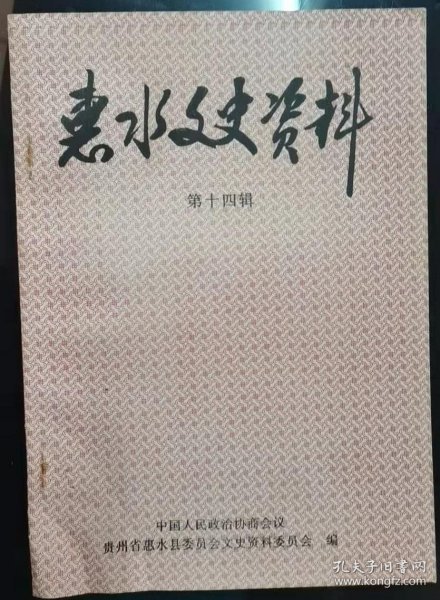 惠水文史资料
第十四辑
中国人民政治协商会议
贵州省惠水县委员会文史资料委员会 编
孔夫子旧书网
www.kongfz.com